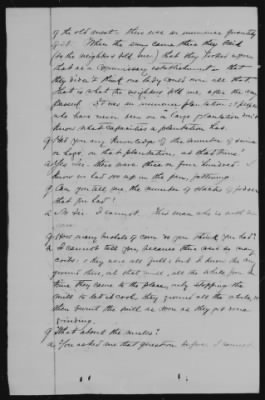 of the old meat. there was an immense quantity
of it. When the army came there they said
(so the neighbors told me) that they looked upon
that as a Commissary establishment & that
they didn't think one lady could own all that
that is what the neighbors told me, after the army
passed. It was an immense plantation & people
who have never been on a large plantation don't
know what capacities a plantation has.
Q Had you any knowledge of the number of swine
or hogs on that plantation, at that time?
a Yes Sir. there were three or four hundred. I
know we had 100 up in the pen, fattening.
Q Can you tell me the number of stacks of fodder
that you had?
a No Sir. I cannot. This man who is with me
can.
Q How many bushels of corn do you think you had?
a I cannot tell you, because there were so many
cribs, & they were all full; but I know the army
ground there, at that mill, all the while from the
time they came to the place, only stopping the
mill to let it cool, they ground all the while, &
then burnt the mill as soon as they got done
grinding.
Q What about the mules?
a You asked me that question before. I cannot